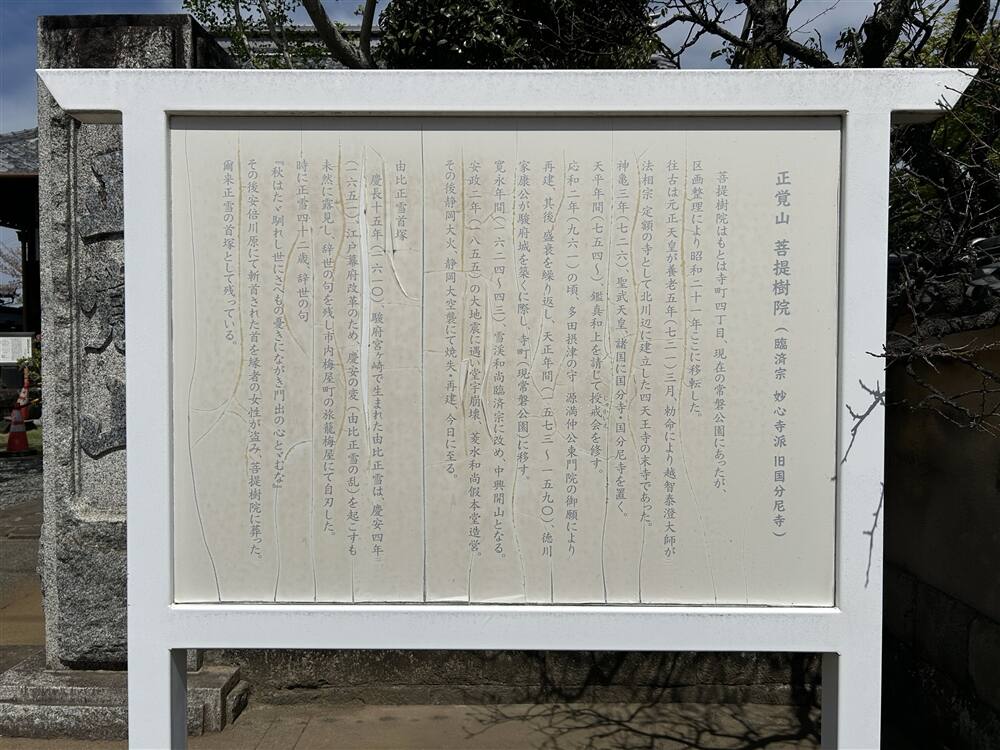 正覚山 菩提樹院(臨済宗 妙心寺派 旧国分尼寺)
菩提樹院はもとは寺町四丁目、現在の常磐公園にあったが、
区画整理により昭和二十一年ここに移転した。
往古は元正天皇が養老五年(七二一)三月、勅命により越智泰澄大師が
法相宗 定額の寺として北川辺に建立した四天王寺の末寺であった。
神亀三年(七二六)、聖武天皇、諸国に国分寺・国分尼寺を置く。
天平年間(七五四〜)、鑑真和上を請じて授戒会を修す。
応和二年(九六一)の頃、多田摂津の守 源満仲公東門院の御願により
再建、其後、盛衰を繰り返し、天正年間(一五七三〜一五九〇)、徳川
家康公が駿府城を築くに際し、寺町(現常磐公園)に移す。
寛永年間(一六二四〜四三)、雪渓和尚臨済宗に改め、中興開山となる。
安政二年(一八五五)の大地震に遇い堂宇崩壊、菱水和尚假本堂造営。
その後静岡大火、静岡大空襲にて焼失・再建、今日に至る。
由比正雪首塚
慶長十五年(一六一〇)、駿府宮ヶ崎で生まれた由比正雪は、慶安四年
(一六五一)江戸幕府改革のため、慶安の変(由比正雪の乱)を起こすも
未然に露見し、辞世の句を残し市内梅屋町の旅籠梅屋にて自刃した。
時に正雪四十二歳、辞世の句
『秋はたゞ馴れし世にさへもの憂きにながき門出の心とゞむな』
その後安倍川原にて斬首された首を縁者の女性が盗み、菩提樹院に葬った。
爾来正雪の首塚として残っている。